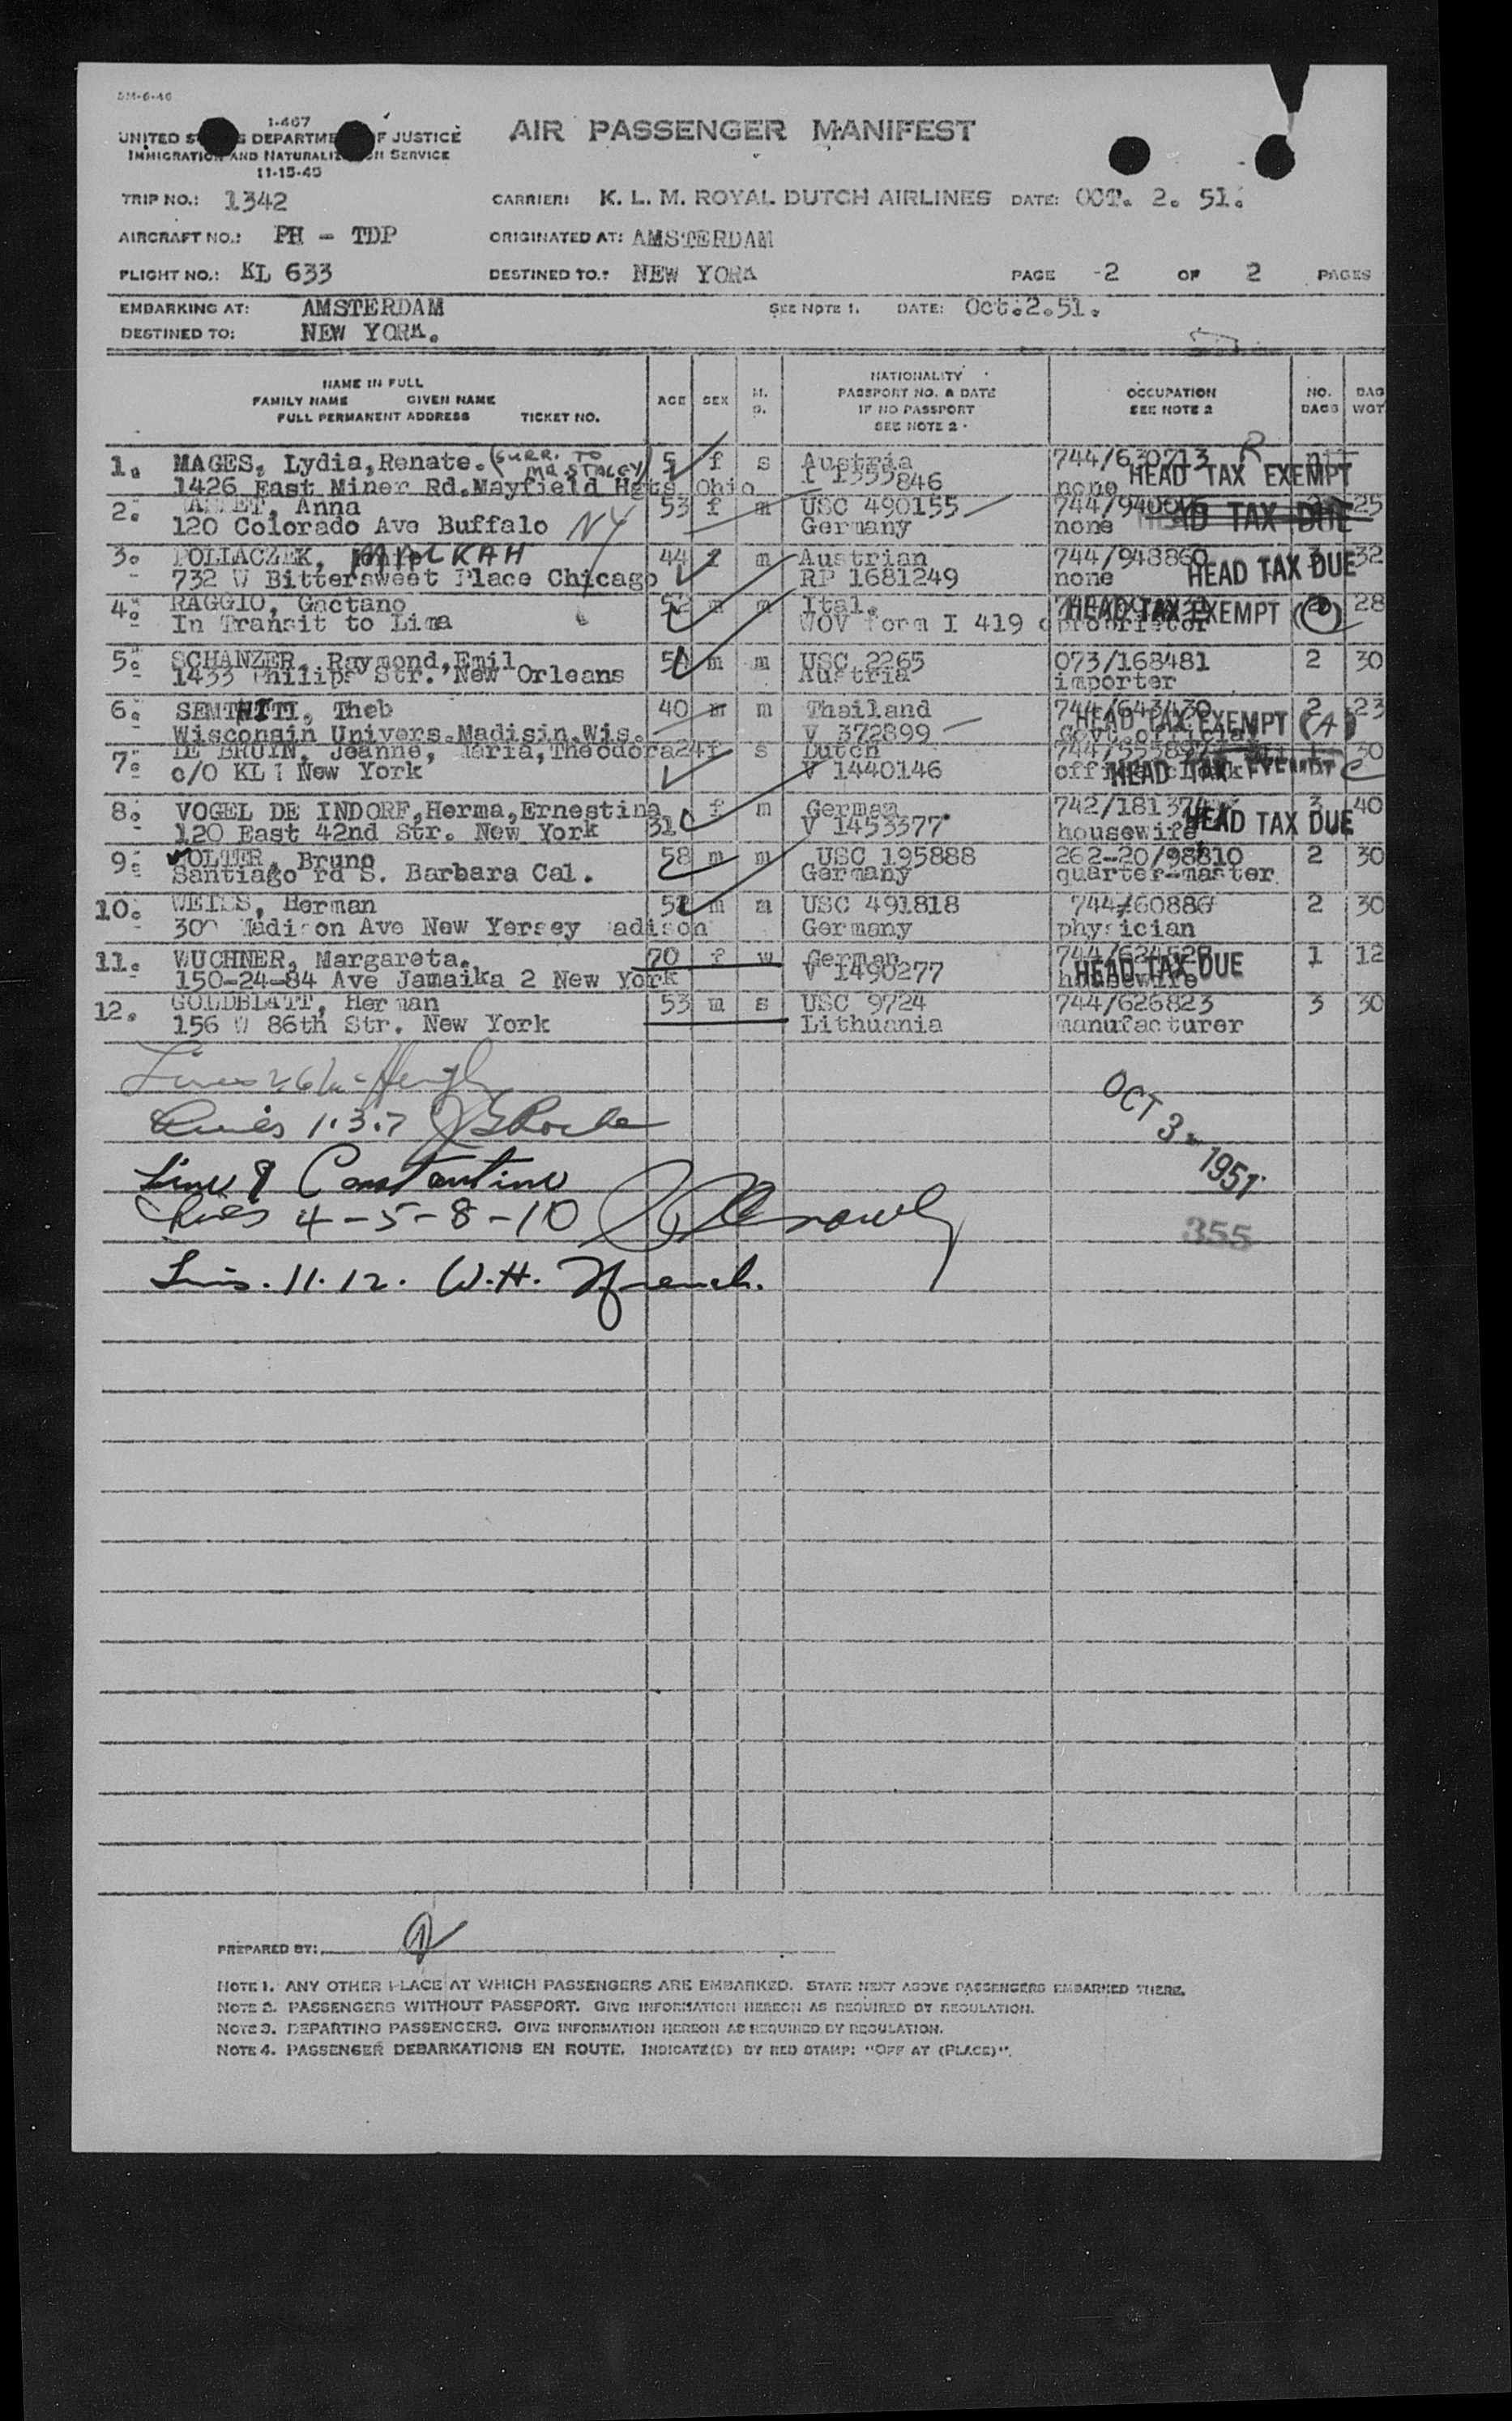 1-467
UNITED S S DEPARTME F JUSTICE
IMMIGRATION AND NATURALIZ ON SERVICE
11-15-45
AIR PASSENGER MANIFEST
TRIP NO.: 1342 CARRIER: K. L. M. ROYAL DUTCH AIRLINES DATE: OCT. 2. 51.
AIRCRAFT NO.: PH - TDP ORIGINATED AT: AMSTERDAM
FLIGHT NO.: KL 633 DESTINED TO.: NEW YORK PAGE -2 OF 2 PAGES
EMBARKING AT: AMSTERDAM SEE NOTE 1. DATE: Oct.2.51.
DESTINED TO: NEW YORK.
NAME IN FULL
FAMILY NAME GIVEN NAME
FULL PERMANENT ADDRESS TICKET NO.
AGE SEX M. S.
NATIONALITY
PASSPORT NO. & DATE
IF NO PASSPORT
SEE NOTE 2
OCCUPATION
SEE NOTE 2
NO. BAGS
BAG WGT
1. MAGES, Lydia,Renate. (SURR. TO MR STALEY) 5 f s Austria 744/630713 R nil
1426 East Miner Rd.Mayfield Hgts Ohio 1355846 none HEAD TAX EXEMPT
2. Anna 53 f m USC 490155 25
120 Colorado Ave Buffalo NY Germany none HEAD TAX DUE
3. POLLACZEK, MALKAH 44 f m Austrian 744/948860 32
732 W Bittersweet Place Chicago RP 1681249 none HEAD TAX DUE
4. RAGGIO, Gaetano 52 m m Ital. HEAD TAX EXEMPT 28
In Transit to Lima WOV form I 419 proprietor
5. SCHANZER, Raymond,Emil 50 m m USC 2265 073/168481 2 30
1433 Philips Str. New Orleans Austria importer
6. Theb 40 m m Thailand 744/643430 2 23
Wisconsin Univers.Madisin.Wis. V 372899 HEAD TAX EXEMPT (A)
7. DE BRUIN, Jeanne, Maria,Theodora 24 f s Dutch 30
c/O KLM New York V 1440146 HEAD TAX EXEMPT C
8. VOGEL DE INDORF,Herma,Ernestina 31 f m German 3 40
120 East 42nd Str. New York V 1453377 housewife HEAD TAX DUE
9. WOLTER, Bruno 58 m m USC 195888 262-20/98810 2 30
Santiago rd S. Barbara Cal. Germany quarter-master
10. WEISS, Herman 52 m m USC 491818 744/60886 2 30
300 Madison Ave New Yersey Madison Germany physician
11. WUCHNER, Margareta. 70 f w German 1 12
150-24-84 Ave Jamaika 2 New York V 1490277 housewife HEAD TAX DUE
12. GOLDBLATT, Herman 53 m s USC 9724 744/626823 3 30
156 W 86th Str. New York Lithuania manufacturer
Lines 1.3.7
Line 9 Constantino
Lines 4-5-8-10
Lins. 11.12. W.H. French.
OCT 3 - 1951
355
PREPARED BY:
NOTE 1. ANY OTHER PLACE AT WHICH PASSENGERS ARE EMBARKED. STATE NEXT ABOVE PASSENGERS EMBARKED THERE.
NOTE 2. PASSENGERS WITHOUT PASSPORT. GIVE INFORMATION HEREON AS REQUIRED BY REGULATION.
NOTE 3. DEPARTING PASSENGERS. GIVE INFORMATION HEREON AS REQUIRED BY REGULATION.
NOTE 4. PASSENGER DEBARKATIONS EN ROUTE. INDICATE(D) BY RED STAMP: "OFF AT (PLACE)".